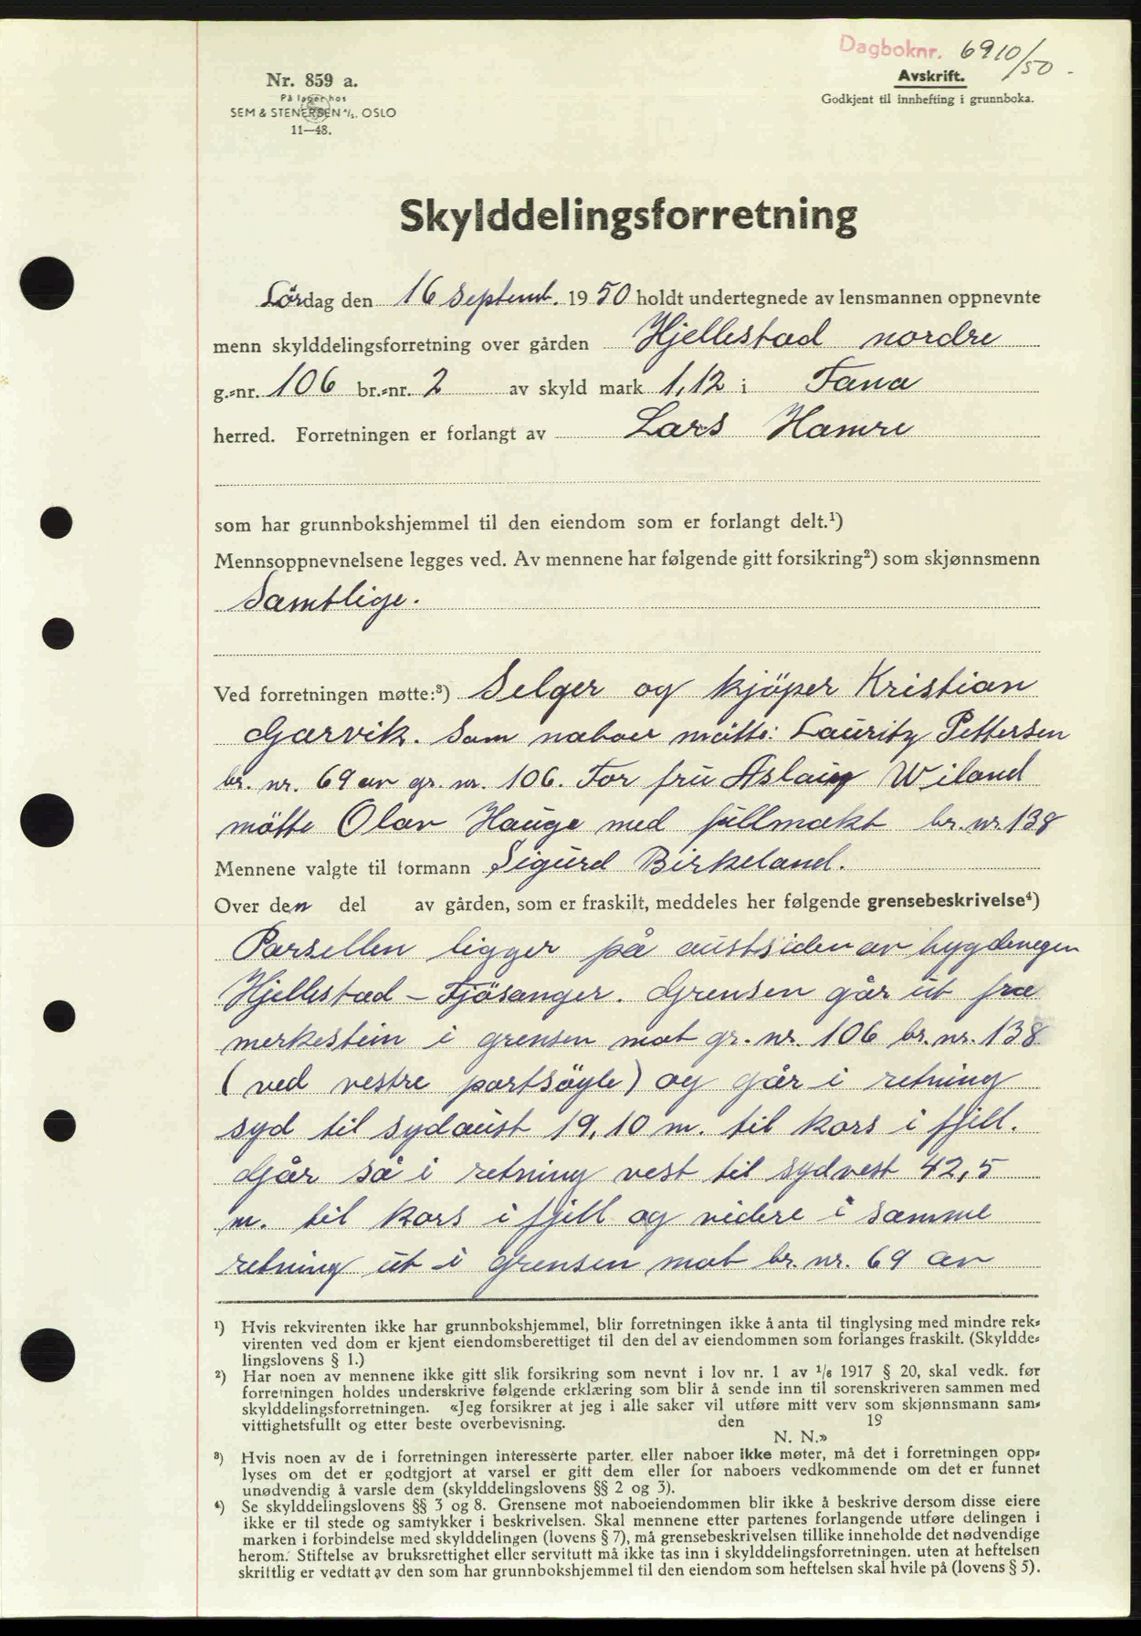 Dagboknr. 6910/50.
Nr. 859 a.
Avskrift.
På lager hos
Godkjent til innhefting i grunnboka.
SEM & STENERSEN A/S. OSLO
11—48.
Skylddelingsforretning
Lördag den 16 Septemb. 1950 holdt undertegnede av lensmannen oppnevnte
menn skylddelingsforretning over gården Hjellestad nordre
g.-nr. 106 br.-nr. 2 av skyld mark 1,12 i Fana
herred. Forretningen er forlangt av Lars Hamre
som har grunnbokshjemmel til den eiendom som er forlangt delt.¹)
Mennsoppnevnelsene legges ved. Av mennene har følgende gitt forsikring²) som skjønnsmenn
Samtlige.
Ved forretningen møtte:³) Selger og kjöper Kristian
Garvik. Som naboer mötte: Lauritz Pettersen
br. nr. 69 av gr. nr. 106. For fru Aslaug Wiland
mötte Olav Hauge med fullmakt br. nr. 138
Mennene valgte til formann Sigurd Birkeland.
Over den del av gården, som er fraskilt, meddeles her følgende grensebeskrivelse⁴)
Parsellen ligger på austsiden av bygdevegen
Hjellestad - Fjösanger. Grensen går ut fra
merkestein i grensen mot gr. nr. 106 br. nr. 138
(ved vestre portsöyle) og går i retning
syd til sydaust 19,10 m. til kors i fjell.
Går så i retning vest til sydvest 42,5
m. til kors i fjell og videre i samme
retning ut i grensen mot br. nr. 69 av
¹) Hvis rekvirenten ikke har grunnbokshjemmel, blir forretningen ikke å anta til tinglysing med mindre rek-
virenten ved dom er kjent eiendomsberettiget til den del av eiendommen som forlanges fraskilt. (Skyldde-
lingslovens § 1.)
²) Har noen av mennene ikke gitt slik forsikring som nevnt i lov nr. 1 av ¹/₆ 1917 § 20, skal vedk. før
forretningen holdes underskrive følgende erklæring som blir å sende inn til sorenskriveren sammen med
skylddelingsforretningen. «Jeg forsikrer at jeg i alle saker vil utføre mitt verv som skjønnsmann sam-
vittighetsfullt og etter beste overbevisning. den 19
N. N.»
³) Hvis noen av de i forretningen interesserte parter eller naboer ikke møter, må det i forretningen opp-
lyses om det er godtgjort at varsel er gitt dem eller for naboers vedkommende om det er funnet
unødvendig å varsle dem (skylddelingslovens §§ 2 og 3).
⁴) Se skylddelingslovens §§ 3 og 8. Grensene mot naboeiendommen blir ikke å beskrive dersom disse eiere
ikke er til stede og samtykker i beskrivelsen. Skal mennene etter partenes forlangende utføre delingen i
marken i forbindelse med skylddelingen (lovens § 7), må grensebeskrivelsen tillike inneholde det nødvendige
herom. Stiftelse av bruksrettighet eller servitutt må ikke tas inn i skylddelingsforretningen, uten at heftelsen
skriftlig er vedtatt av den som har grunnbokshjemmel til den eiendom som heftelsen skal hvile på (lovens § 5).